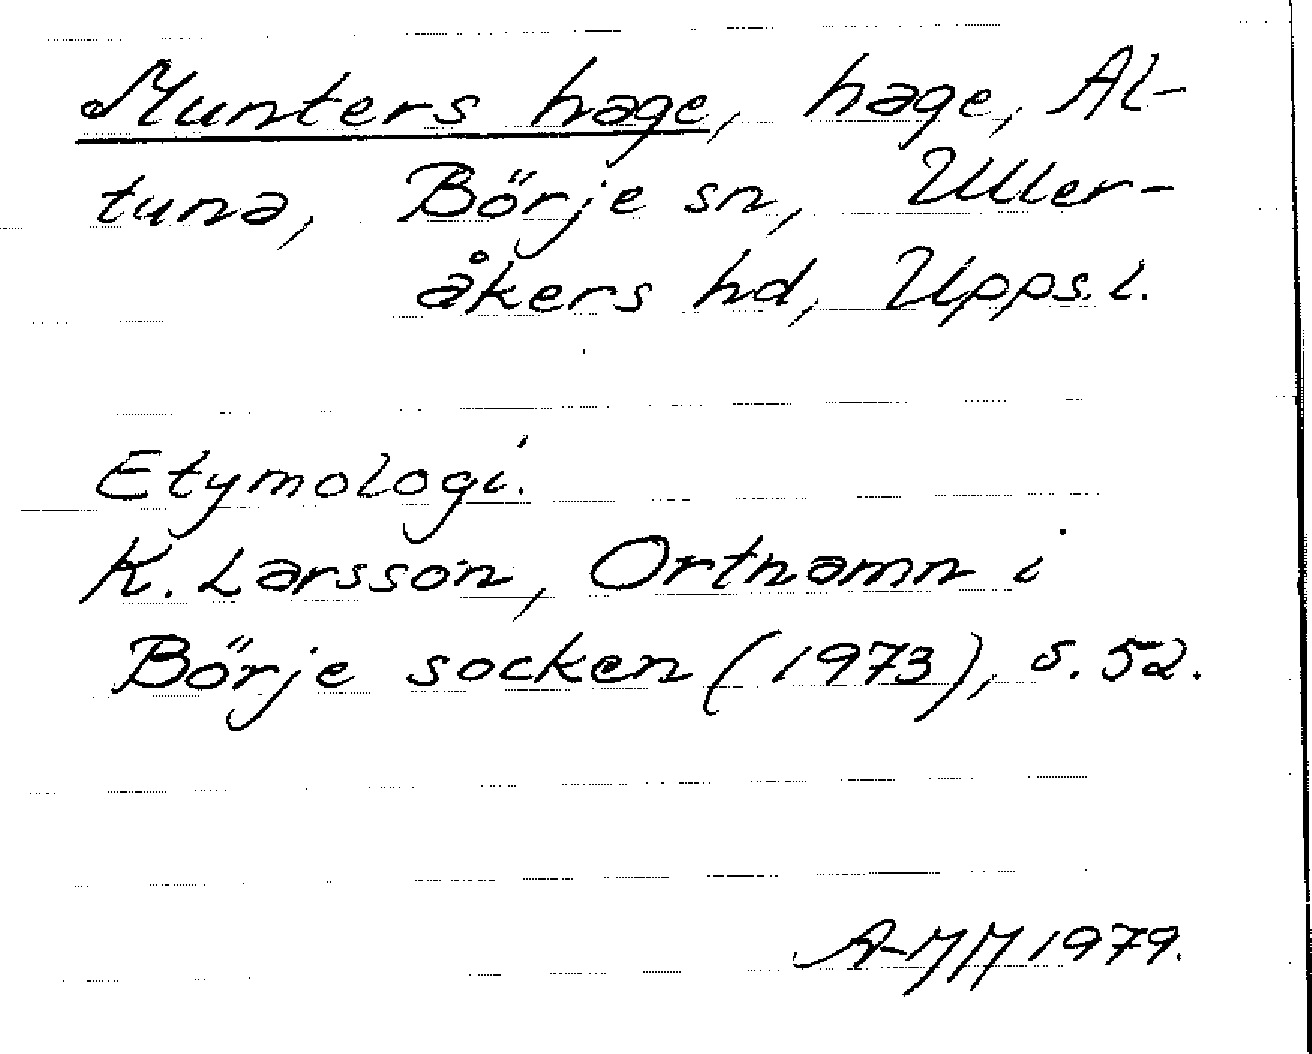 Munters hage, hage, Al-
tuna, Börje sn, Uller-
åkers hd, Upps.l.
Etymologi.
K. Larsson, Ortnamn i
Börje socken (1973), s. 52.
1979.